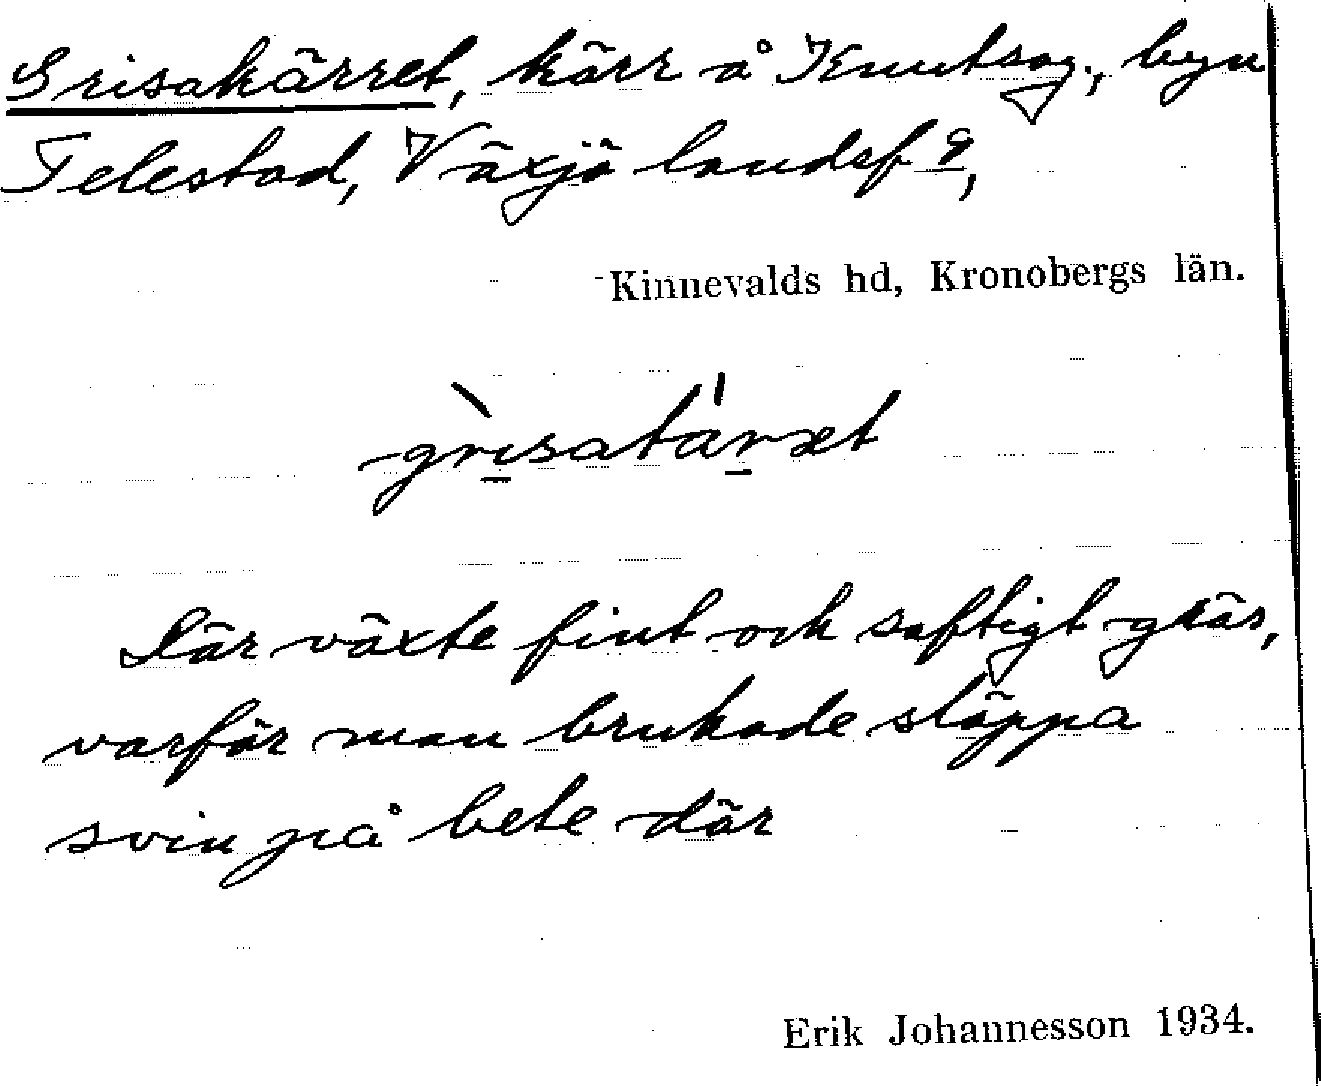 Grisakärret, kärr å Knutsag., byn
Telestad, Växjö landsf g,
Kinnevalds hd, Kronobergs län.
Där växte fint och saftigt gräs,
varför man brukade släppa
svin på bete där
Erik Johannesson 1934.